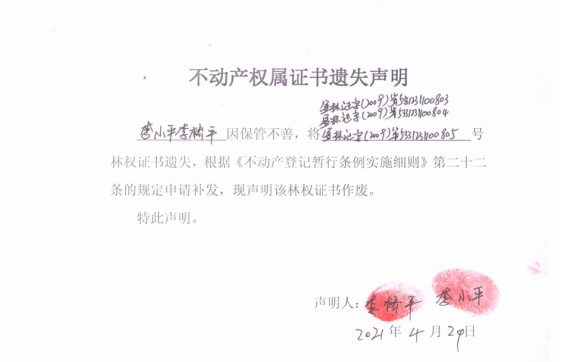 不动产权属证书遗失声明
林证字(2009)第5331231100803
林证字(2009)第5331231100804
李小平李桥平因保管不善，将林证字(2009)第5331231100805号
林权证书遗失，根据《不动产登记暂行条例实施细则》第二十二
条的规定申请补发，现声明该林权证书作废。
特此声明。
声明人：李桥平 李小平
2021年4月29日